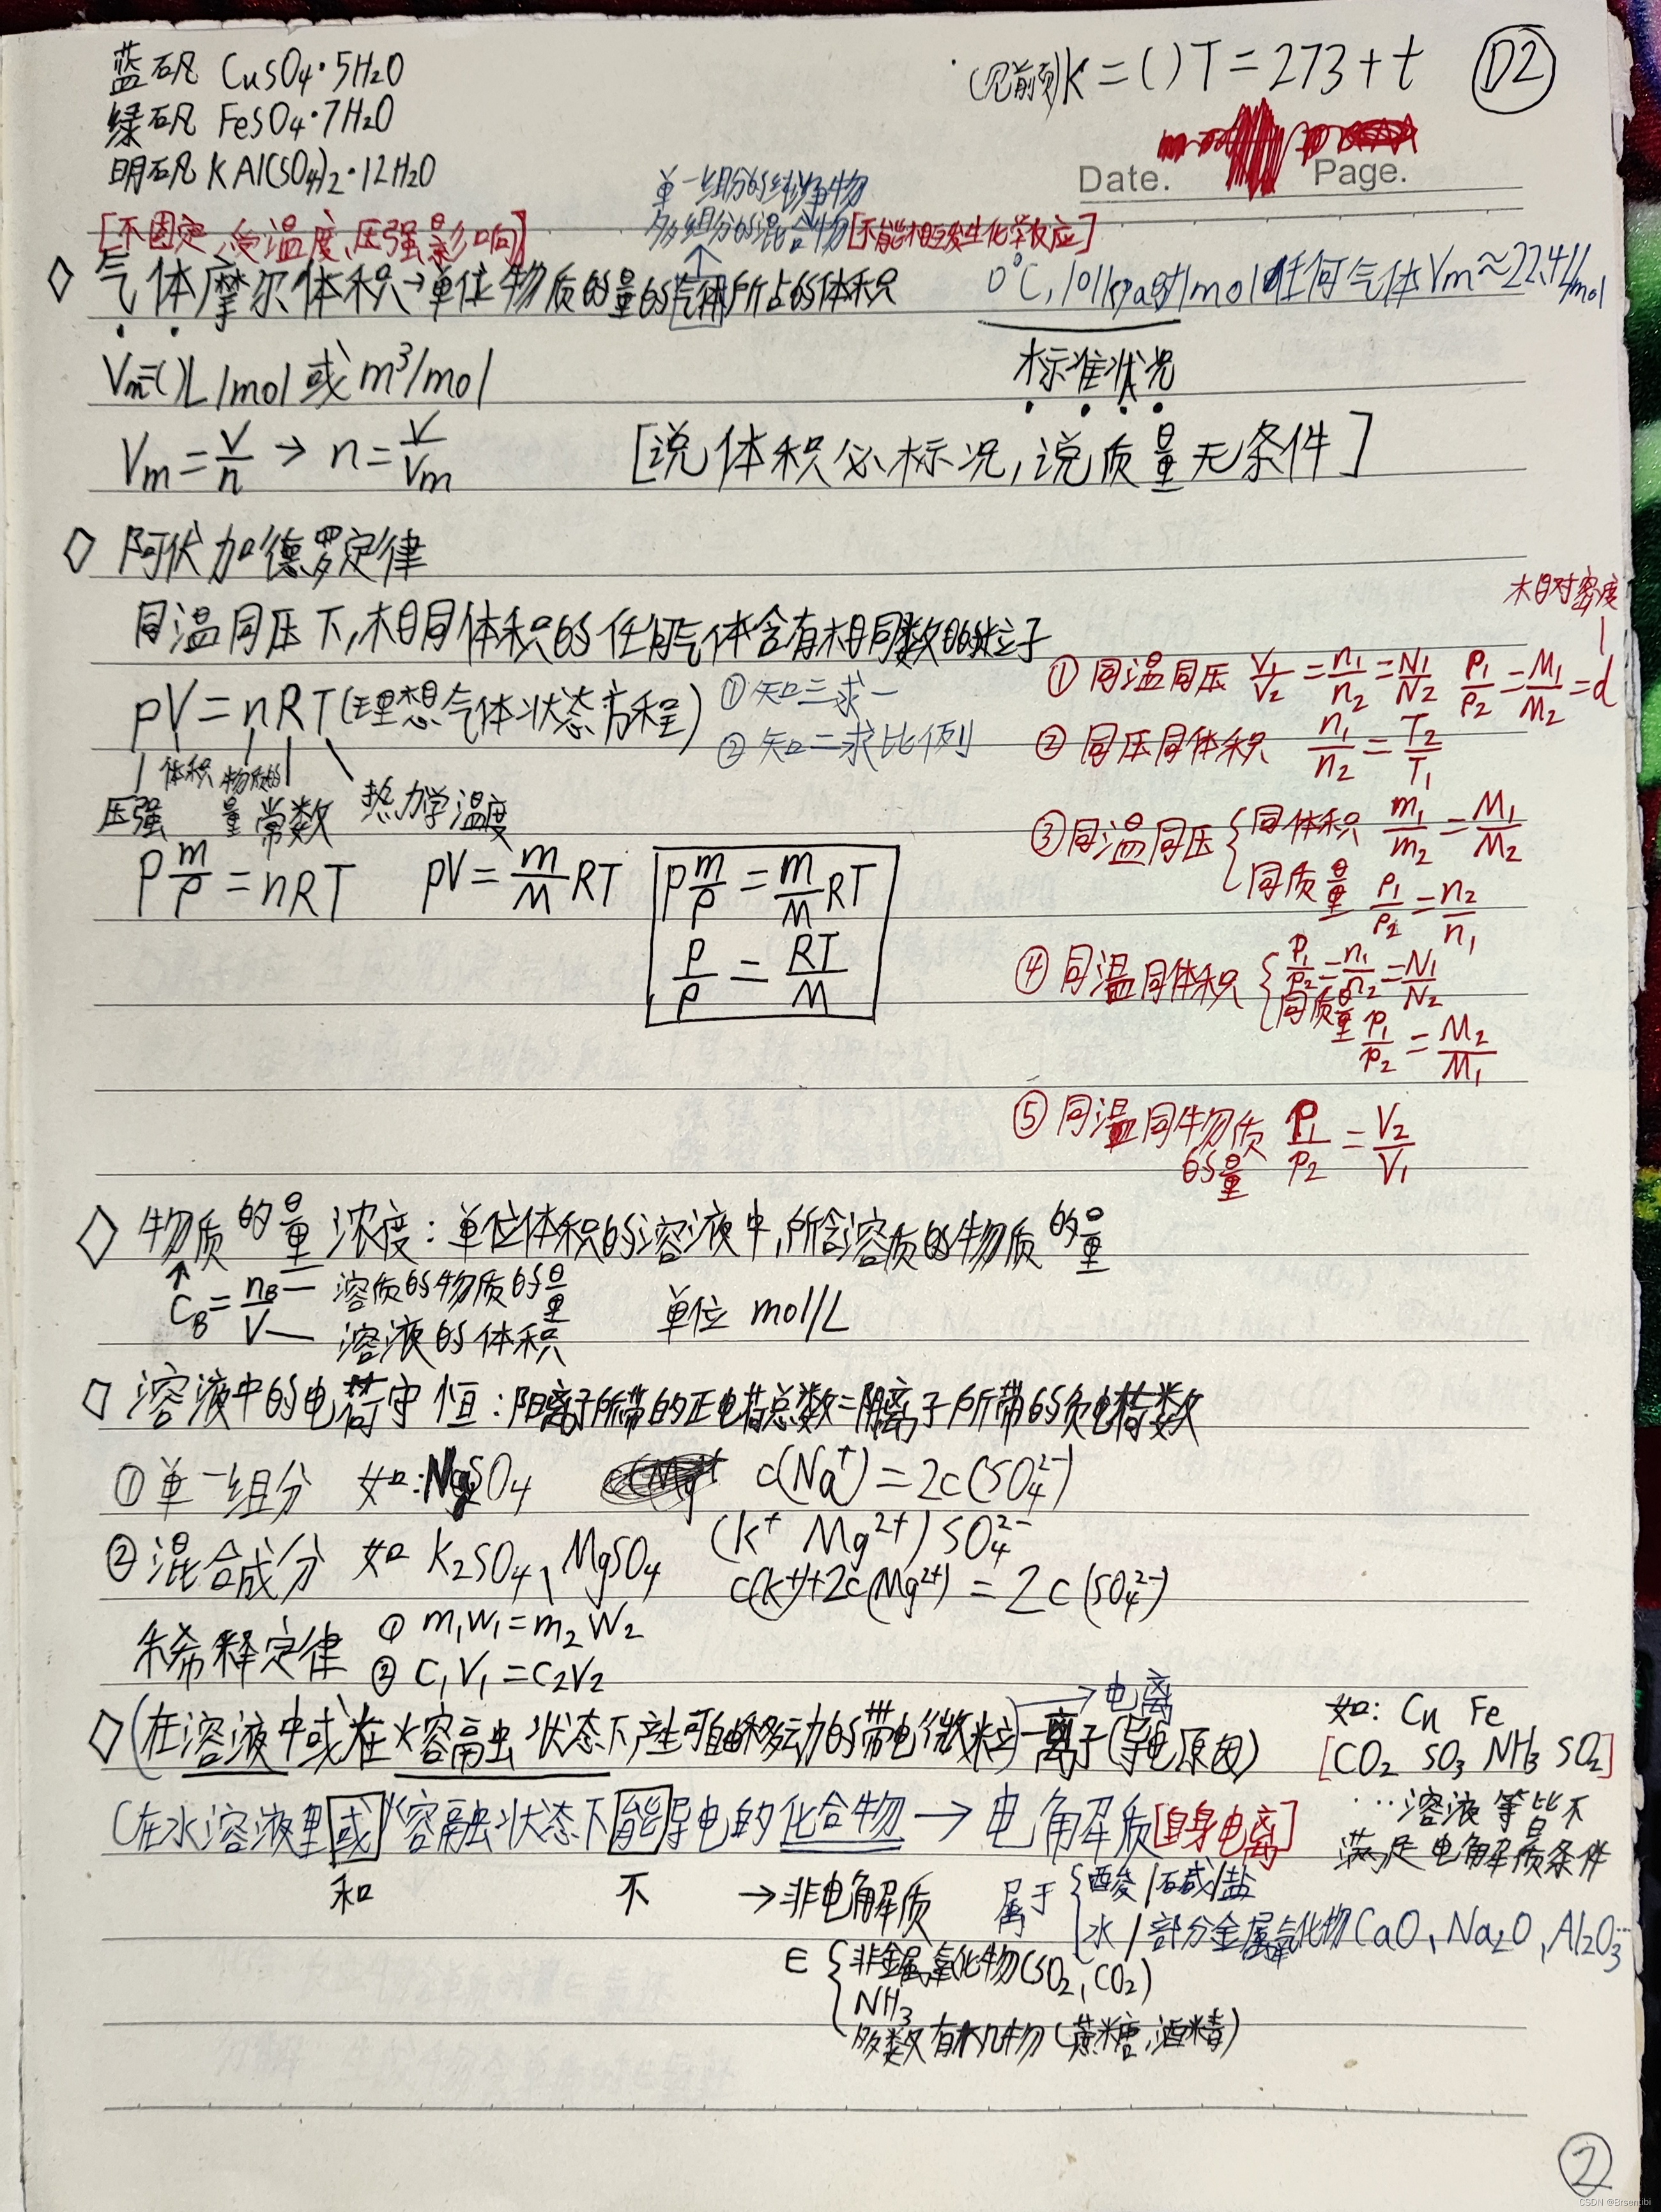 蓝矾 CuSO₄·5H₂O
(见前页)K=( )T=273+t
D2
绿矾 FeSO₄·7H₂O
明矾 KAl(SO₄)₂·12H₂O
Date.
Page.
单一组分的纯净物
多组分的混合物[不能相互发生化学反应]
[不固定,受温度、压强影响]
◇气体摩尔体积→单位物质的量的气体所占的体积
0℃,101kpa时1mol任何气体Vm≈22.4L/mol
标准状况
Vm=( )L/mol或m³/mol
Vm=V/n→n=V/Vm
[说体积必标况,说质量无条件]
◇阿伏加德罗定律
同温同压下,相同体积的任何气体含有相同数目的粒子
pV=nRT(理想气体状态方程)
①知三求一
②知二求比例
压强
体积
物质的量
常数
热力学温度
p m/ρ=nRT
pV=m/M RT
p m/ρ=m/M RT
p/ρ=RT/M
相对密度
①同温同压 V₁/V₂=n₁/n₂=N₁/N₂ ρ₁/ρ₂=M₁/M₂=d
②同压同体积 n₁/n₂=T₂/T₁
③同温同压{同体积 m₁/m₂=M₁/M₂
同质量 ρ₁/ρ₂=n₂/n₁
④同温同体积{p₁/p₂=n₁/n₂=N₁/N₂
同质量 p₁/p₂=M₂/M₁
⑤同温同物质的量 p₁/p₂=V₂/V₁
◇物质的量浓度:单位体积的溶液中,所含溶质的物质的量
c_B=n_B/V
溶质的物质的量
溶液的体积
单位 mol/L
◇溶液中的电荷守恒:阳离子所带的正电荷总数=阴离子所带的负电荷数
①单一组分 如:Na₂SO₄ c(Na⁺)=2c(SO₄²⁻)
②混合成分 如K₂SO₄、MgSO₄ (K⁺ Mg²⁺)SO₄²⁻
c(K⁺)+2c(Mg²⁺)=2c(SO₄²⁻)
稀释定律 ①m₁w₁=m₂w₂
②c₁V₁=c₂V₂
→电离
◇(在溶液中或在熔融状态下产生可自由移动的带电微粒)—离子(导电原因)
如: Cu Fe
[CO₂ SO₃ NH₃ SO₂]
…溶液等皆不
满足电解质条件
(在水溶液里或熔融状态下能导电的化合物→电解质[自身电离]
和
不
→非电解质
属于{酸/碱/盐
水/部分金属氧化物CaO、Na₂O、Al₂O₃…
∈{非金属氧化物(SO₂,CO₂)
NH₃
多数有机物(蔗糖,酒精)
②
CSDN @Brsentibi